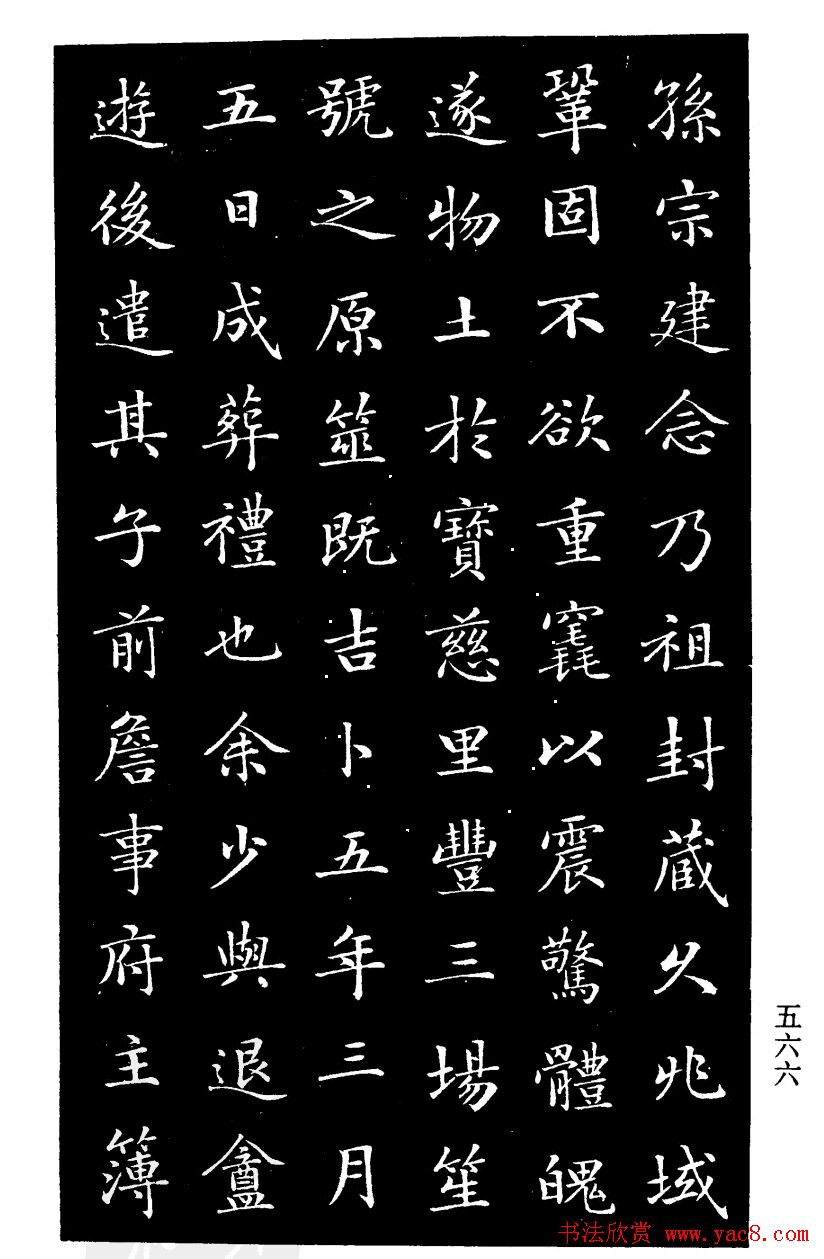 孫宗建念乃祖封蔵久兆域
鞏固不欲重竁以震驚體魄
遂物土於寶慈里豐三場笙
號之原筮既吉卜五年三月
五日成葬禮也余少與退盦
遊後遣其子前詹事府主簿
五六六
书法欣赏 www.yac8.com